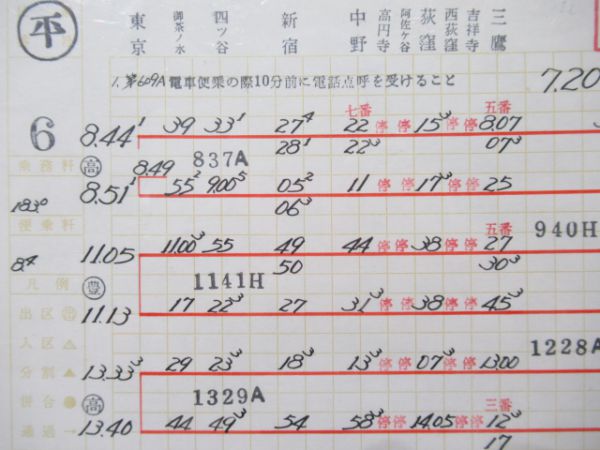 平 東京 御茶ノ水 四ツ谷 新宿 中野 高円寺 阿佐ケ谷 荻窪 西荻窪 吉祥寺 三鷹
1、第609A電車便乗の際10分前に電話点呼を受けること 7.20
七番 五番
6 8.44¹ 39 33¹ 27⁴ 22 停 停 15³ 停 停 8.07
28¹ 22³ 07³
乗務粁 高 8.49 837A
8.51¹ 55² 9.00⁵ 05² 11 停 停 17³ 停 停 25
183⁰ 06³
便乗粁 五番 940H
11.05 11.00³ 55 49 44 停 停 38 停 停 27
8.4 50 30³
凡例 豊 1141H
出区 11.13 17 22³ 27 31³ 停 停 38 停 停 45³
入区△ 1228A
分割▲ 13.33³ 29 23³ 18³ 13³ 停 停 07³ 停 停 13.00
併合● 高 1329A 三番
通過→ 13.40 44 49³ 54 58³ 停 停 14.05 停 停 12³
17